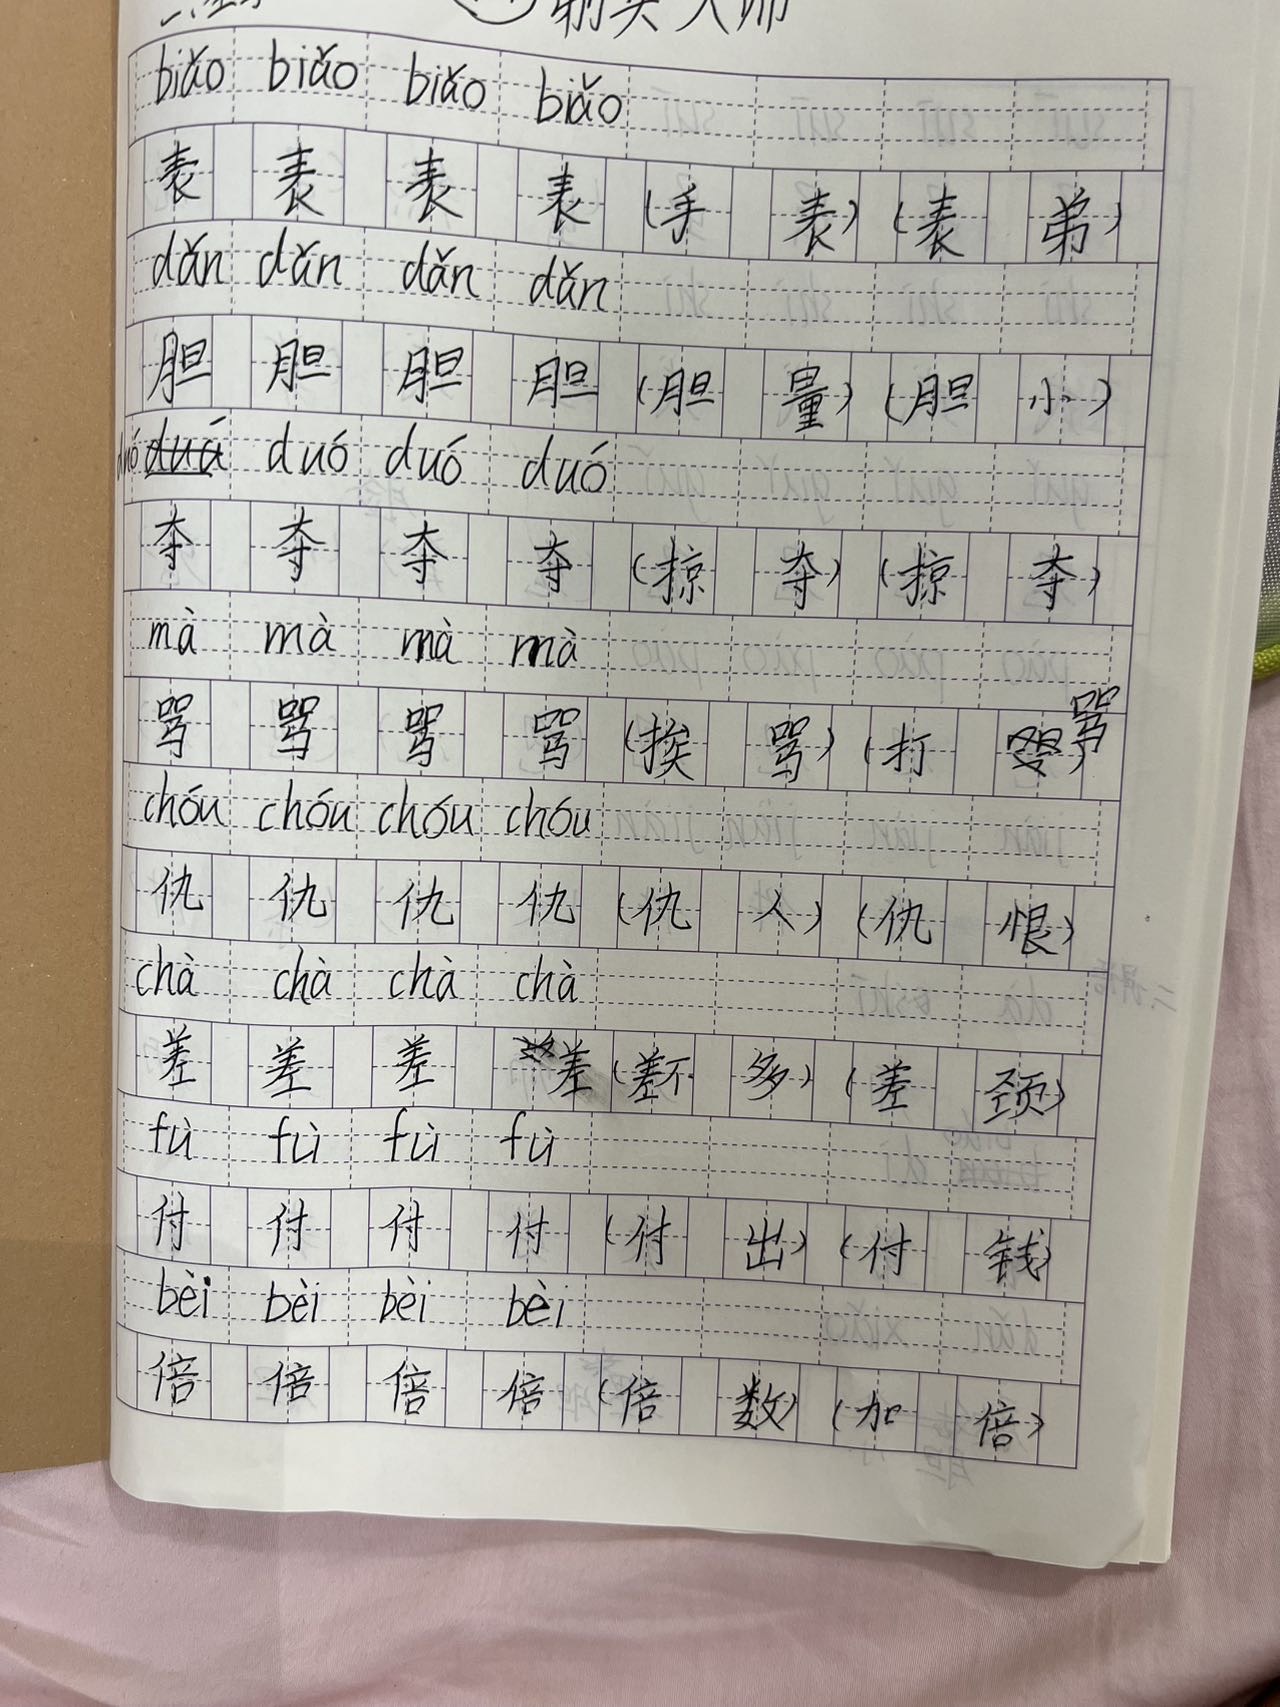 剃头大师
biǎo biǎo biǎo biǎo
表 表 表 表 (手 表) (表 弟)
dǎn dǎn dǎn dǎn
胆 胆 胆 胆 (胆 量) (胆 小)
duó duá duó duó duó
夺 夺 夺 夺 (掠 夺) (掠 夺)
mà mà mà mà
骂 骂 骂 骂 (挨 骂) (打 骂)
chóu chóu chóu chóu
仇 仇 仇 仇 (仇 人) (仇 恨)
chà chà chà chà
差 差 差 差 (差不 多) (差 颈)
fù fù fù fù
付 付 付 付 (付 出) (付 钱)
bèi bèi bèi bèi
倍 倍 倍 倍 (倍 数) (加 倍)